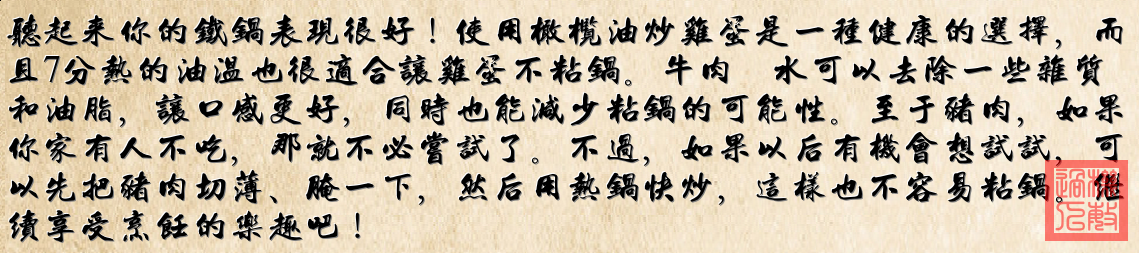 聽起来你的鐵鍋表現很好！使用橄欖油炒雞蛋是一種健康的選擇，而
且7分熱的油溫也很適合讓雞蛋不粘鍋。牛肉 水可以去除一些雜質
和油脂，讓口感更好，同時也能減少粘鍋的可能性。至于豬肉，如果
你家有人不吃，那就不必嘗試了。不過，如果以后有機會想試試，可
以先把豬肉切薄、腌一下，然后用熱鍋快炒，這樣也不容易粘鍋。继
續享受烹飪的樂趣吧！